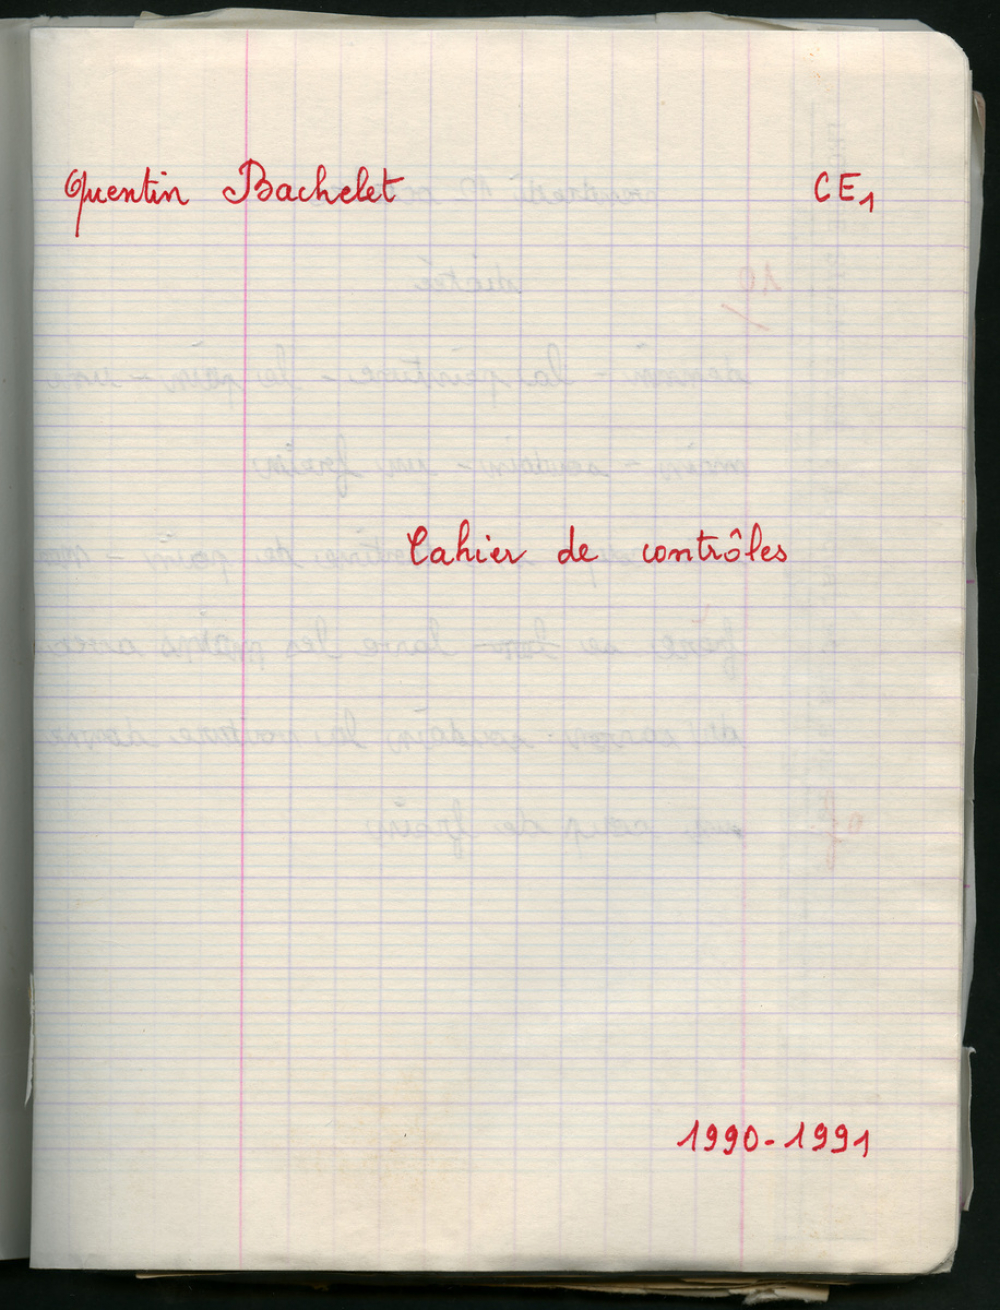 Quentin Bachelet CE1
Cahier de contrôles
1990-1991